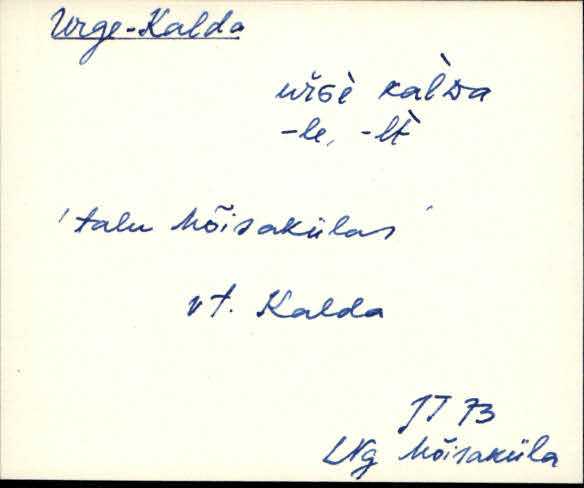 Urge-Kalda
urGè kal̀Da
-le, -lt̀
'talu Mõisakülas'
vt. Kalda
JT 73
LNg Mõisaküla